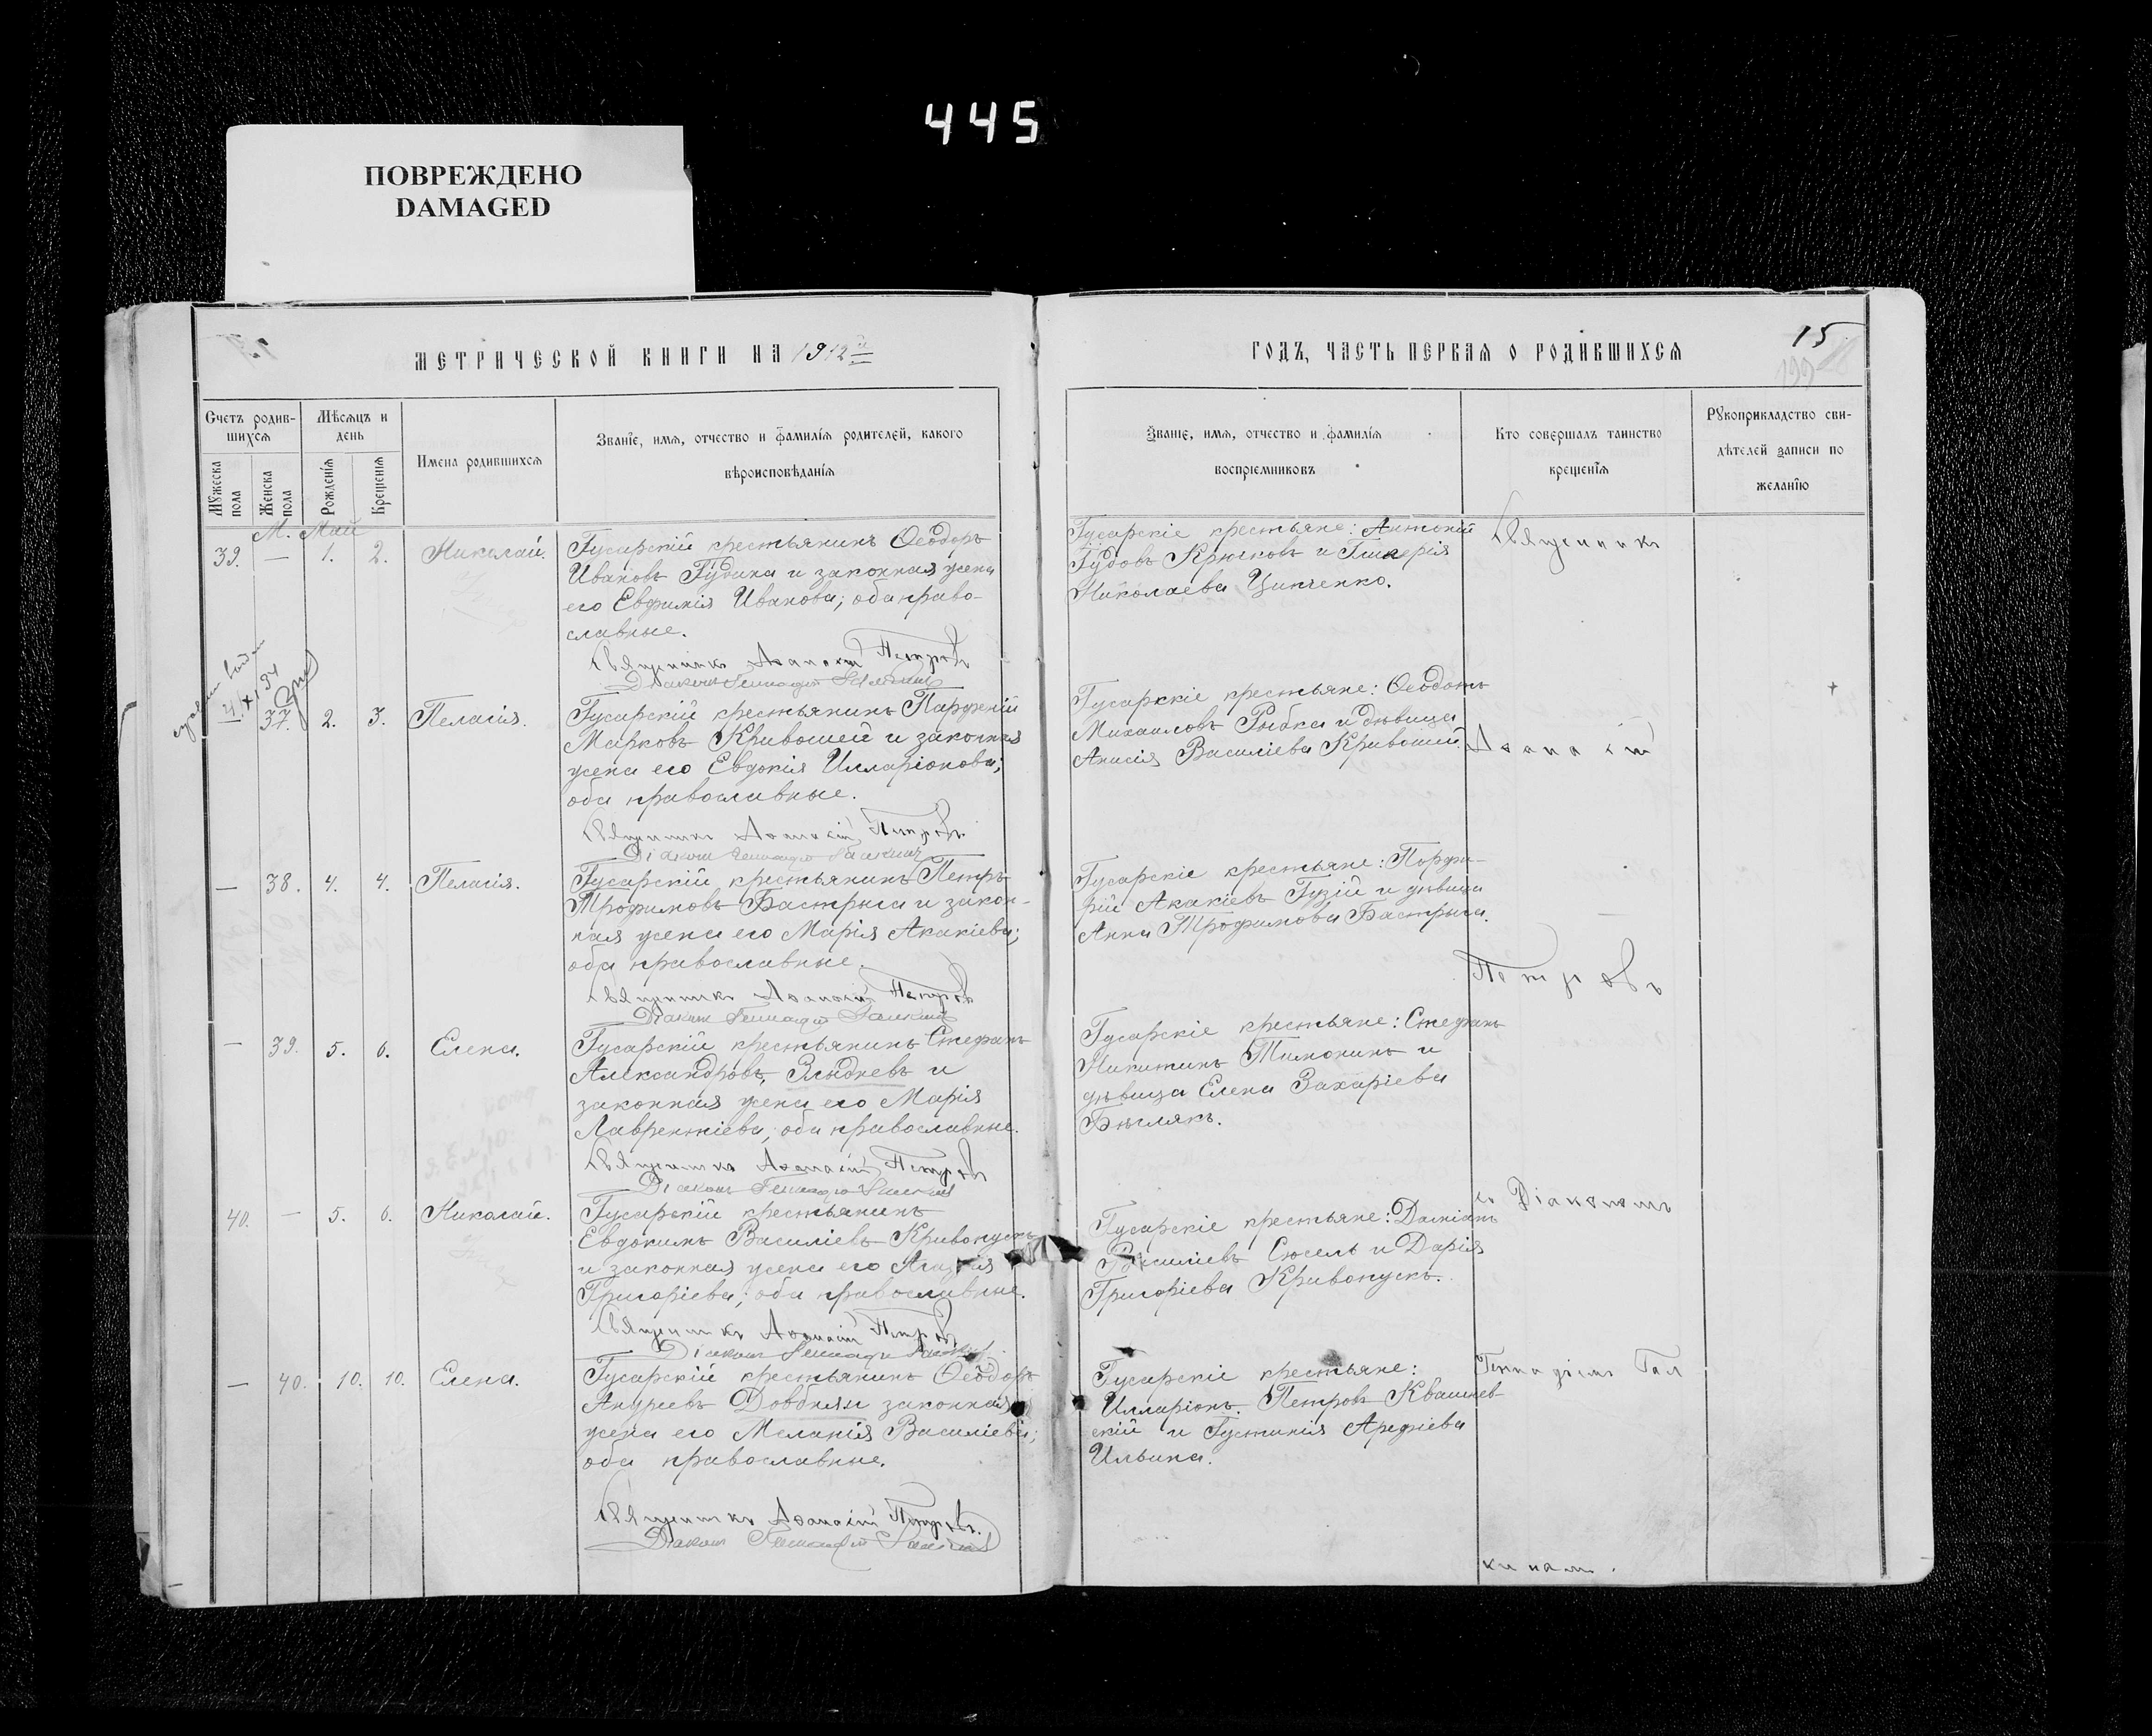 445
ПОВРЕЖДЕНО
DAMAGED
МЕТРИЧЕСКОЙ КНИГИ НА 1912й
Счетъ родившихся
Мужеска пола
Женска пола
Мѣсяцъ и день
Рожденія
Крещенія
Имена родившихся
Званіе, имя, отчество и фамилія родителей, какого
вѣроисповѣданія
М. Май
39. — 1. 2. Николай.
Гусарскій крестьянинъ Ѳеодоръ
Ивановъ Гудина и законная жена
его Евфимія Иванова; оба право-
славные.
Священникъ Аѳанасій Петровъ
Діаконъ Геннадій Галкинъ
37. 2. 3. Пелагія.
Гусарскій крестьянинъ Парфеній
Марковъ Кривошей и законная
жена его Евдокія Илларіонова;
оба православные.
Священникъ Аѳанасій Петровъ
Діаконъ Геннадій Галкинъ
— 38. 4. 4. Пелагія.
Гусарскій крестьянинъ Петръ
Трофимовъ Бастрыга и закон-
ная жена его Марія Акакіева;
оба православные.
Священникъ Аѳанасій Петровъ
Діаконъ Геннадій Галкинъ
— 39. 5. 6. Елена.
Гусарскій крестьянинъ Стефанъ
Александровъ Злыдневъ и
законная жена его Марія
Лаврентіева; оба православные.
Священникъ Аѳанасій Петровъ
Діаконъ Геннадій Галкинъ
40. — 5. 6. Николай.
Гусарскій крестьянинъ
Евдокимъ Василіевъ Кривопускъ
и законная жена его Агафія
Григоріева; оба православные.
Священникъ Аѳанасій Петровъ
Діаконъ Геннадій Галкинъ
— 40. 10. 10. Елена.
Гусарскій крестьянинъ Ѳеодоръ
Андреевъ Довбня и законная
жена его Меланія Василіева;
оба православные.
Священникъ Аѳанасій Петровъ.
Діаконъ Геннадій Галкинъ
ГОДЪ, ЧАСТЬ ПЕРВАЯ О РОДИВШИХСЯ
15
199
Званіе, имя, отчество и фамилія
воспріемниковъ
Кто совершалъ таинство
крещенія
Рукоприкладство сви-
дѣтелей записи по
желанію
Гусарскіе крестьяне: Антоній
Крюковъ и Гликерія
Николаева Цинченко.
Гусарскіе крестьяне: Ѳеодотъ
Михаиловъ Рыбка и дѣвица
Анисія Василіева Кривошей.
Гусарскіе крестьяне: Порфи-
рій Акакіевъ Гузій и дѣвица
Анна Трофимова Бастрыга.
Гусарскіе крестьяне: Стефанъ
Никитинъ Тимонинъ и
дѣвица Елена Захаріева
Бѣглякъ.
Гусарскіе крестьяне: Даміанъ
Василіевъ Сюсель и Дарія
Григоріева Кривопускъ.
Гусарскіе крестьяне:
Илларіонъ Петровъ Квашнев-
скій и Густинія Арефіева
Ильина.
Священникъ
Аѳанасій
Петровъ
съ Діакономъ
Геннадіемъ Гал
кинымъ.